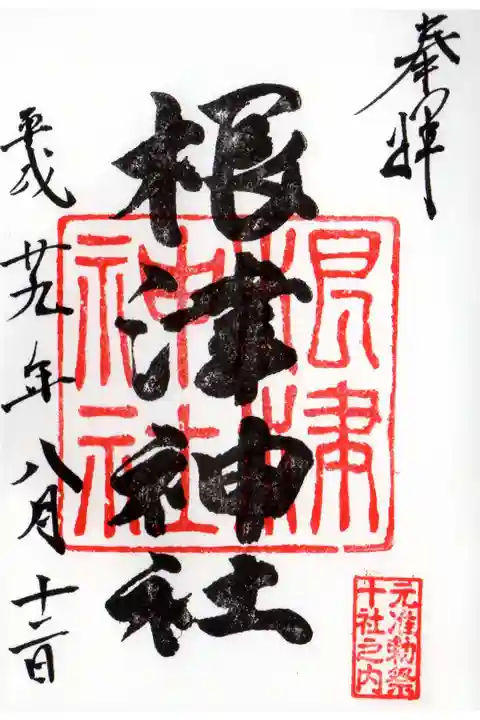 奉拝
根津神社
根津神社
元准勅祭
十社之内
平成廿九年八月十二日